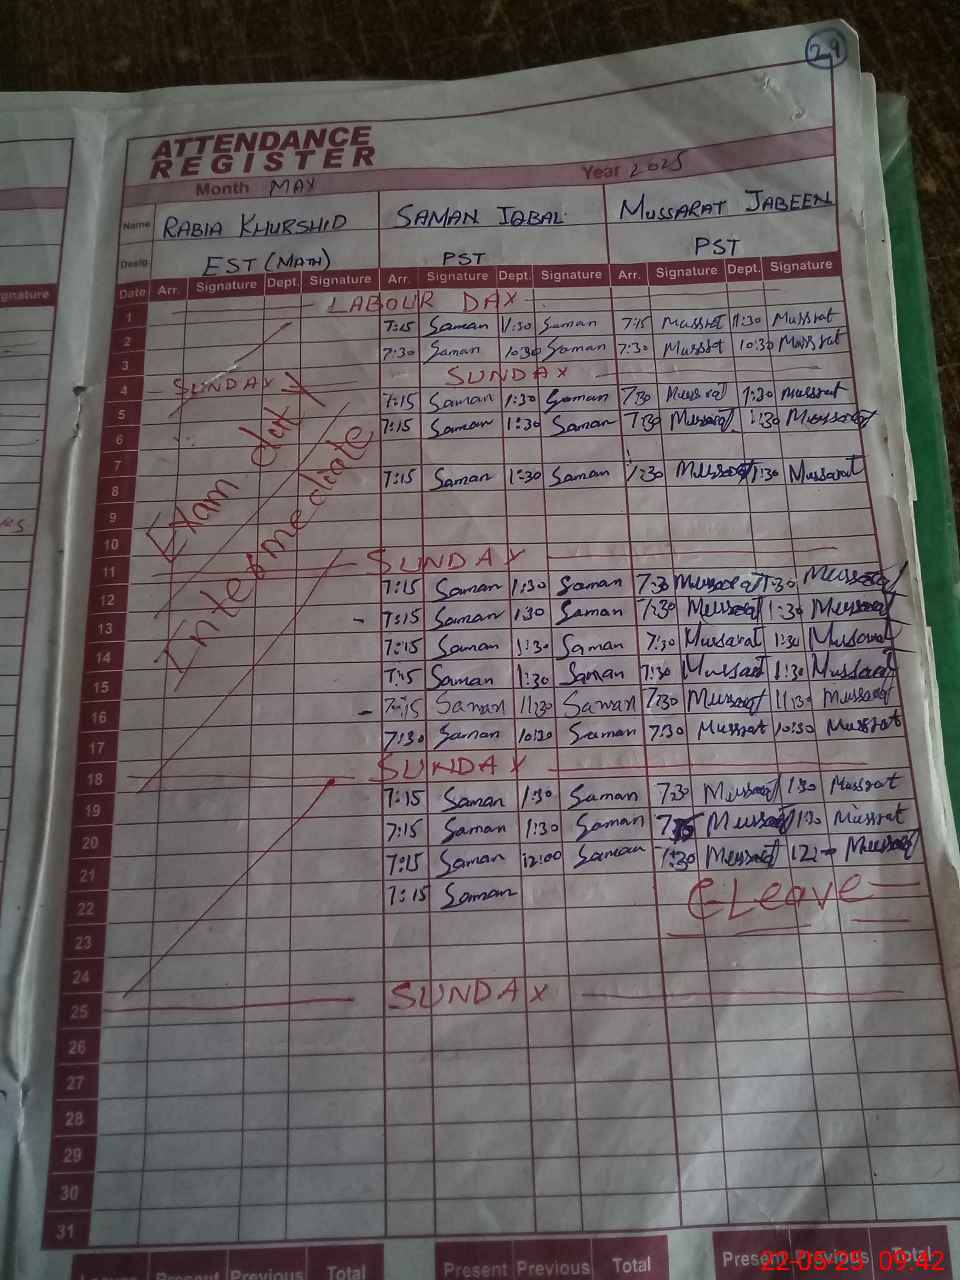 29
ATTENDANCE
REGISTER
Month MAY Year 2025
Name RABIA KHURSHID SAMAN IQBAL MUSSARAT JABEEN
Desig. EST (MATH) PST PST
gnature Date Arr. Signature Dept. Signature Arr. Signature Dept. Signature Arr. Signature Dept. Signature
1 LABOUR DAY
2 7:15 Saman 11:30 Saman 7:15 Mussrat 11:30 Mussrat
3 7:30 Saman 10:30 Saman 7:30 Mussrat 10:30 Mussrat
4 SUNDAY SUNDAY
5 7:15 Saman 1:30 Saman 7:30 Mussrat 1:30 Mussrat
6 7:15 Saman 1:30 Saman 7:30 Mussarat 1:30 Mussarat
Exam duty
7
8 7:15 Saman 1:30 Saman 7:30 Mussarat 1:30 Mussarat
9
10
Intermediate
11 SUNDAY
12 7:15 Saman 1:30 Saman 7:30 Mussarat 1:30 Mussarat
13 7:15 Saman 1:30 Saman 7:30 Mussarat 1:30 Mussarat
14 7:15 Saman 1:30 Saman 7:30 Mussarat 1:30 Mussarat
15 7:15 Saman 1:30 Saman 7:30 Mussarat 1:30 Mussarat
16 7:15 Saman 11:30 Saman 7:30 Mussarat 11:30 Mussarat
17 7:30 Saman 10:30 Saman 7:30 Mussrat 10:30 Mussrat
18 SUNDAY
19 7:15 Saman 1:30 Saman 7:30 Mussarat 1:30 Mussrat
20 7:15 Saman 1:30 Saman Mussarat 1:30 Mussrat
21 7:15 Saman 12:00 Saman 7:30 Mussarat Mussarat
22 7:15 Saman C-Leave
23
24
25 SUNDAY
26
27
28
29
30
31
Present Previous Total Present Previous Total Present Previous Total
22-05-25 09:42